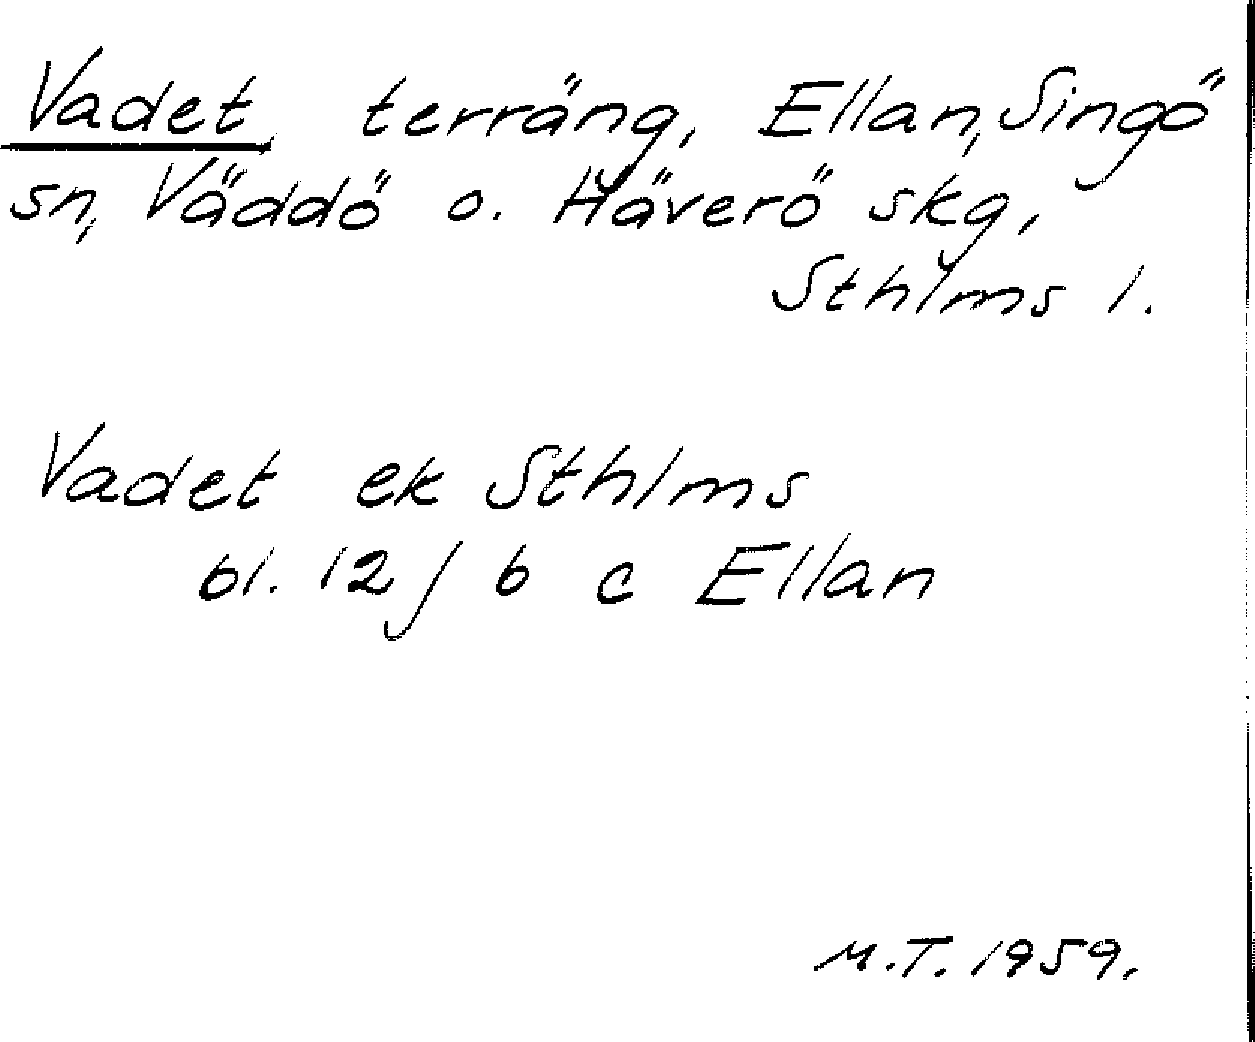 Vadet, terräng, Ellan, Singö
sn, Väddö o. Häverö skg,
Sthlms l.
Vadet ek Sthlms
bl. 12 j 6 c Ellan
M.T. 1959.